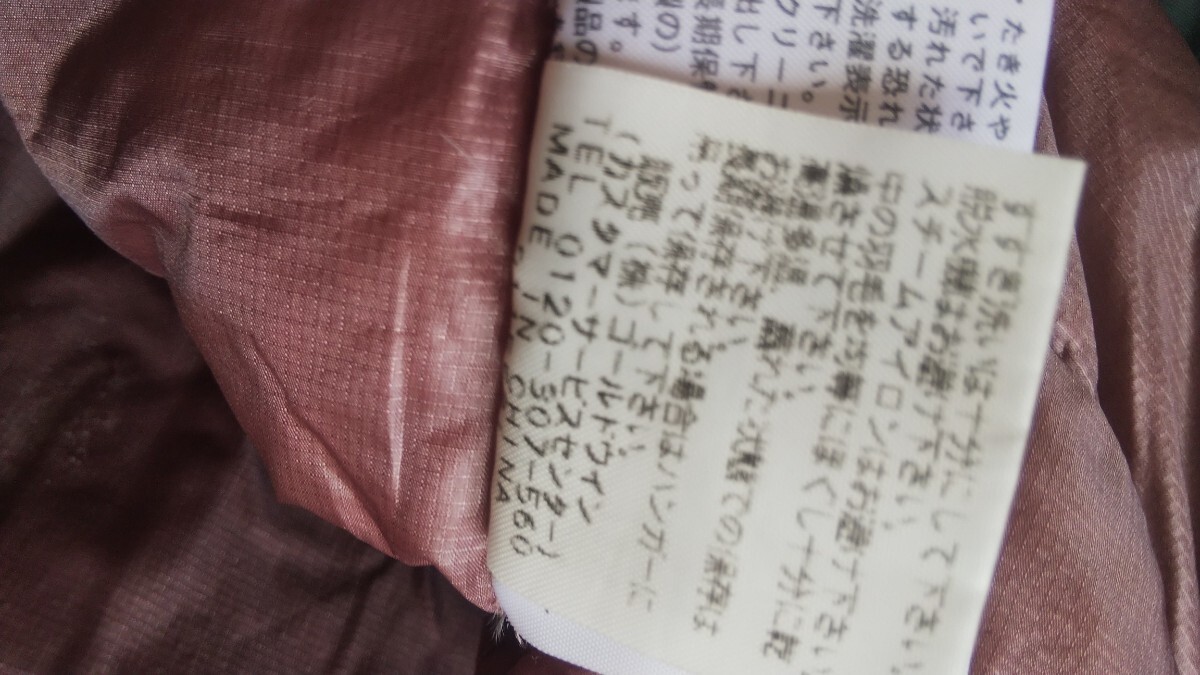 たき火や
いで下さ
汚れた状
する恐れ
洗濯表示
下さい。
クリーニ
出し下さ
長期保
の)
す。
品の
すすぎ洗いは十分にして下さい。
脱水機はお避け下さい。
スチームアイロンはお避け下さい
中の羽毛を均等にほぐし十分に乾
燥させて下さい。
高温多湿
お避け下さい。
保存される場合はハンガーに
って保存して下さい。
販売(株)ゴールドウイン
(カスタマーサービスセンター)
TEL 0120-307-560
MADE IN CHINA